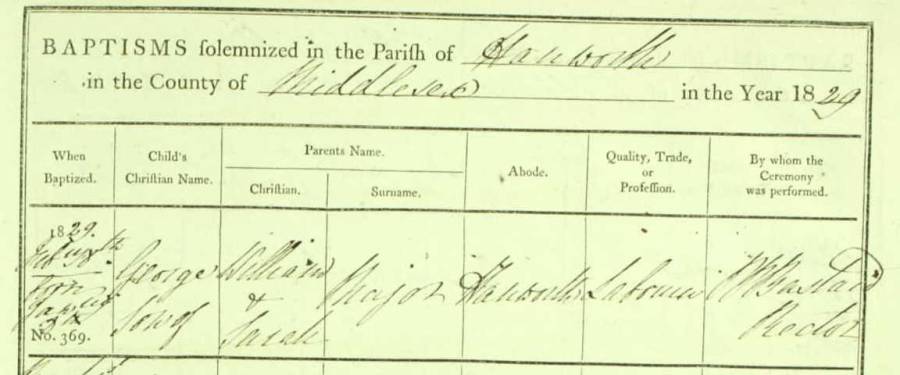 BAPTISMS solemnized in the Parish of Hanworth
in the County of Middlesex in the Year 1829
When Baptized.
Child's Christian Name.
Parents Name.
Christian.
Surname.
Abode.
Quality, Trade, or Profession.
By whom the Ceremony was performed.
1829.
Born
No. 369.
George
Son of
William
&
Sarah
Major
Hanworth
Labourer
Rector